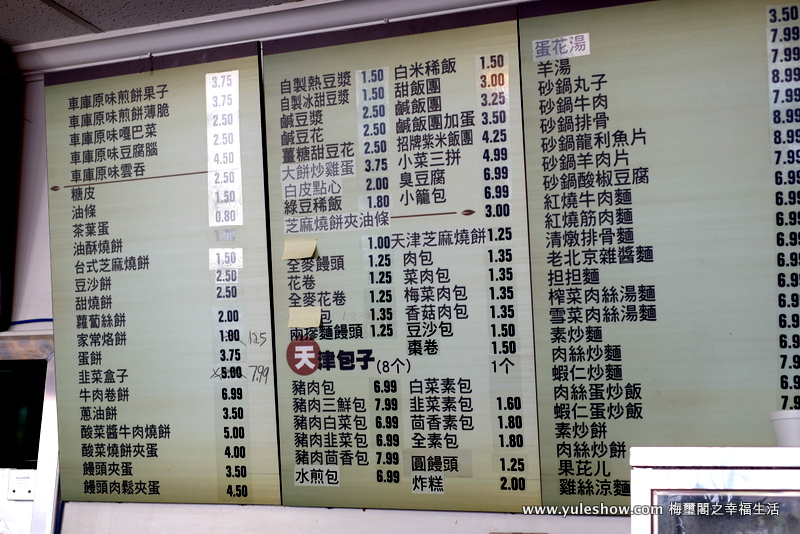 車庫原味煎餅果子 3.75
車庫原味煎餅薄脆 3.75
車庫原味嘎巴菜 2.50
車庫原味豆腐腦 2.50
車庫原味雲吞 4.50
糖皮 2.50
油條 1.50
茶葉蛋 0.80
油酥燒餅
台式芝麻燒餅 1.50
豆沙餅 2.50
甜燒餅 2.50
蘿蔔絲餅 2.00
家常烙餅 1.80 125
蛋餅 3.75
韭菜盒子 5.00 7.99
牛肉卷餅 6.99
蔥油餅 3.50
酸菜醬牛肉燒餅 5.00
酸菜燒餅夾蛋 4.00
饅頭夾蛋 3.50
饅頭肉鬆夾蛋 4.50
自製熱豆漿 1.50
自製冰甜豆漿 1.50
鹹豆漿 2.50
鹹豆花 2.50
薑糖甜豆花 2.50
大餅炒雞蛋 3.75
白皮點心 2.00
綠豆稀飯 1.80
芝麻燒餅夾油條 3.00
1.00
全麥饅頭 1.25
花卷 1.25
全麥花卷 1.25
包 1.35
兩摻麵饅頭 1.25
白米稀飯 1.50
甜飯團 3.00
鹹飯團 3.25
鹹飯團加蛋 3.50
招牌紫米飯團 4.25
小菜三拼 4.99
臭豆腐 6.99
小籠包 6.99
天津芝麻燒餅 1.25
肉包 1.35
菜肉包 1.35
梅菜肉包 1.35
香菇肉包 1.35
豆沙包 1.50
棗卷 1.50
天津包子(8个) 1个
豬肉包 6.99
豬肉三鮮包 7.99
豬肉白菜包 6.99
豬肉韭菜包 6.99
豬肉茴香包 7.99
水煎包 6.99
白菜素包
韭菜素包 1.60
茴香素包 1.80
全素包 1.80
圓饅頭 1.25
炸糕 2.00
蛋花湯 3.50
羊湯 7.99
砂鍋丸子 7.99
砂鍋牛肉 8.99
砂鍋排骨 7.99
砂鍋龍利魚片 8.99
砂鍋羊肉片 8.99
砂鍋酸椒豆腐 7.99
紅燒牛肉麵
紅燒筋肉麵
清燉排骨麵
老北京雜醬麵
担担麵
榨菜肉絲湯麵
雪菜肉絲湯麵
素炒麵
肉絲炒麵
蝦仁炒麵
肉絲蛋炒飯
蝦仁蛋炒飯
素炒餅
肉絲炒餅
果芘儿
雞絲涼麵
www.yuleshow.com 梅璽閣之幸福生活